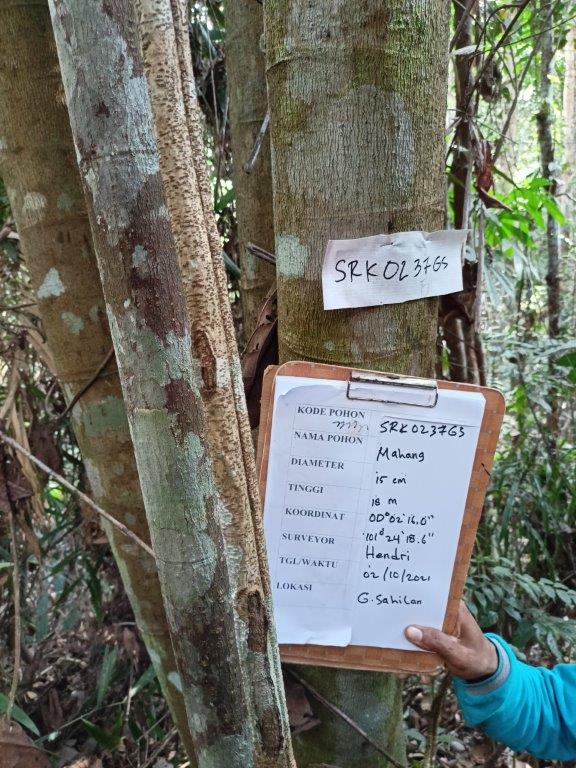 SRK0237GS
KODE POHON SRK0237GS
NAMA POHON Mahang
DIAMETER 15 cm
TINGGI 18 m
KOORDINAT 00°02'16.0"
101°24'18.6"
SURVEYOR Hendri
TGL/WAKTU 02/10/2021
LOKASI G.Sahilan